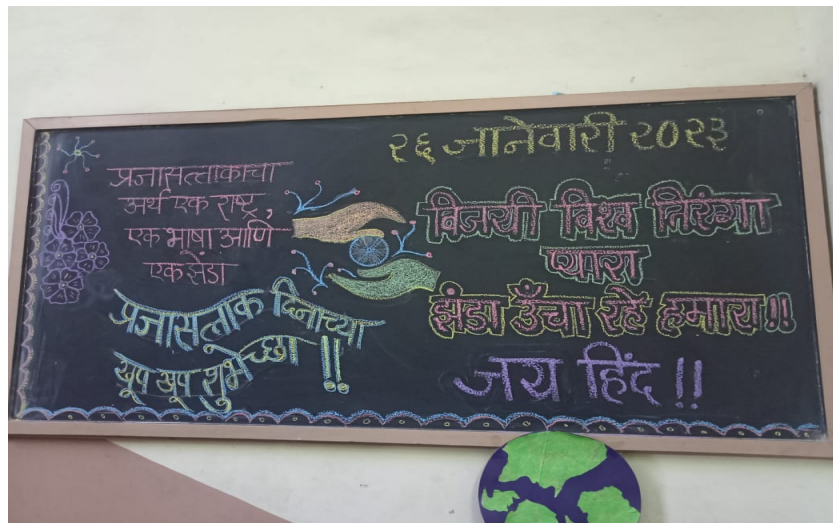 २६ जानेवारी २०२३
प्रजासत्ताकाचा
अर्थ एक राष्ट्र,
एक भाषा आणि
एक झेंडा
प्रजासत्ताक दिनाच्या
खूप खूप शुभेच्छा !!
विजयी विश्व तिरंगा
प्यारा
झंडा ऊँचा रहे हमारा !!
जय हिंद !!